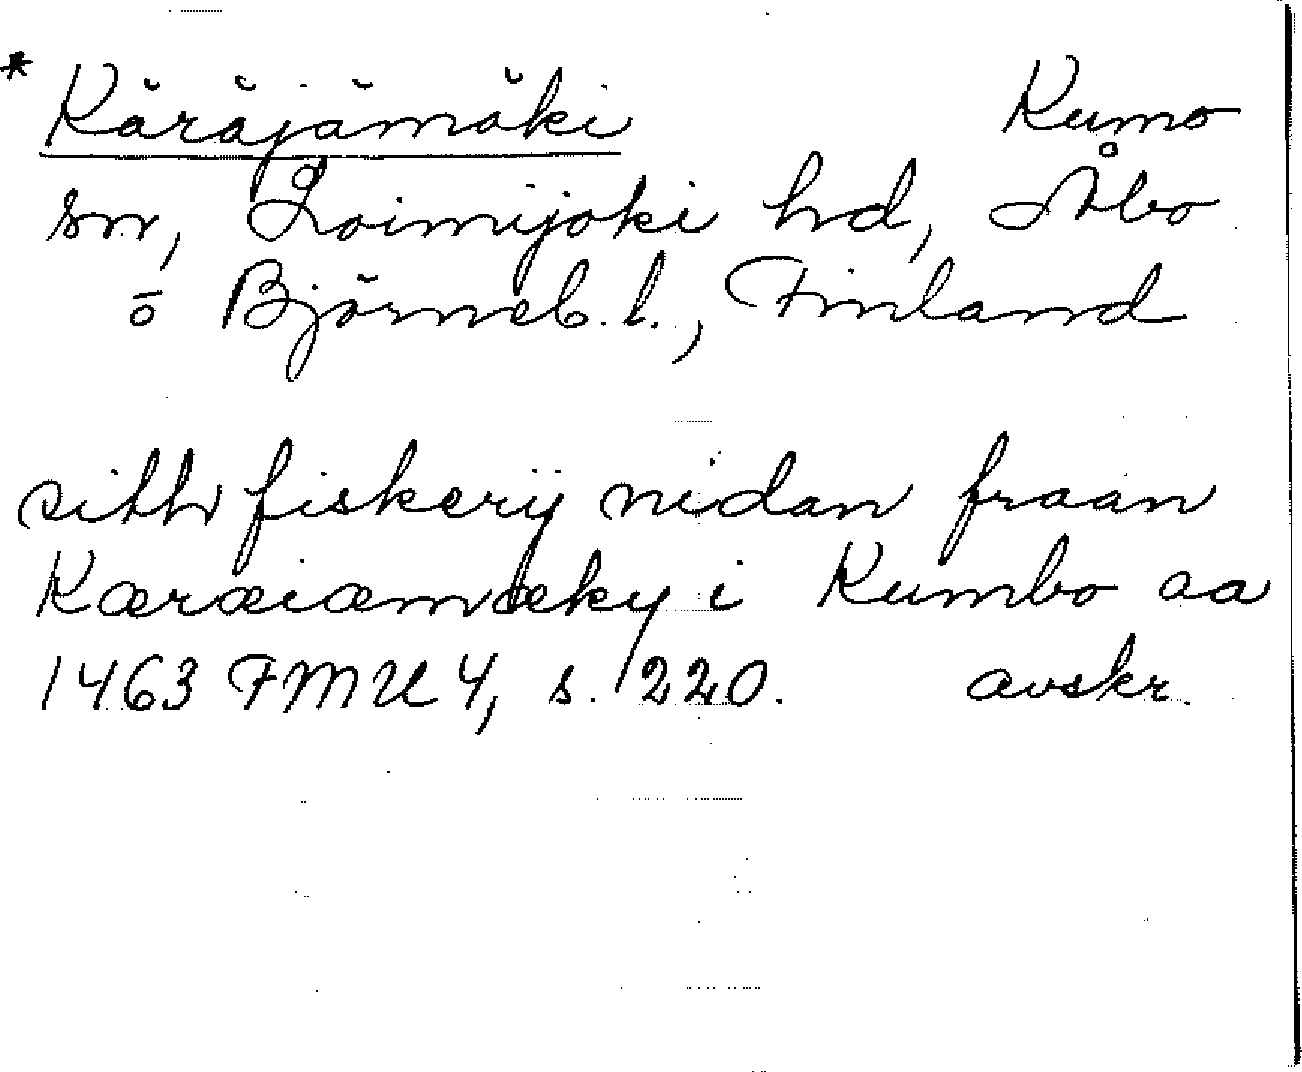 * Käräjämäki Kumo
sn, Loimijoki hd, Åbo
o Björneb. l., Finland
sith fiskerij nidan fraan
Karæiæmæky i Kumbo aa
1463 FMU 4, s. 220. avskr.